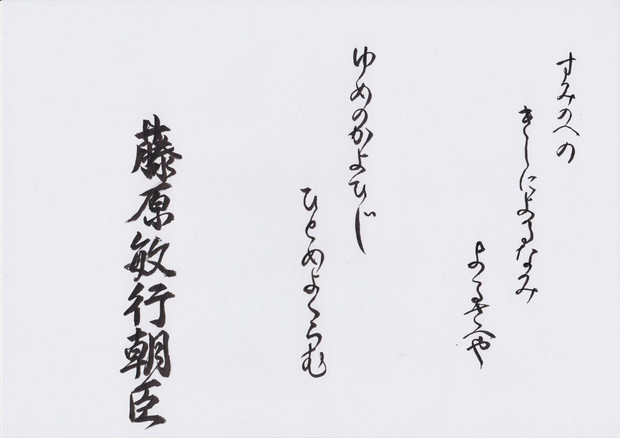 すみのへの
きしによるなみ
よるさへや
ゆめのかよひじ
ひとめよくらむ
藤原敏行朝臣